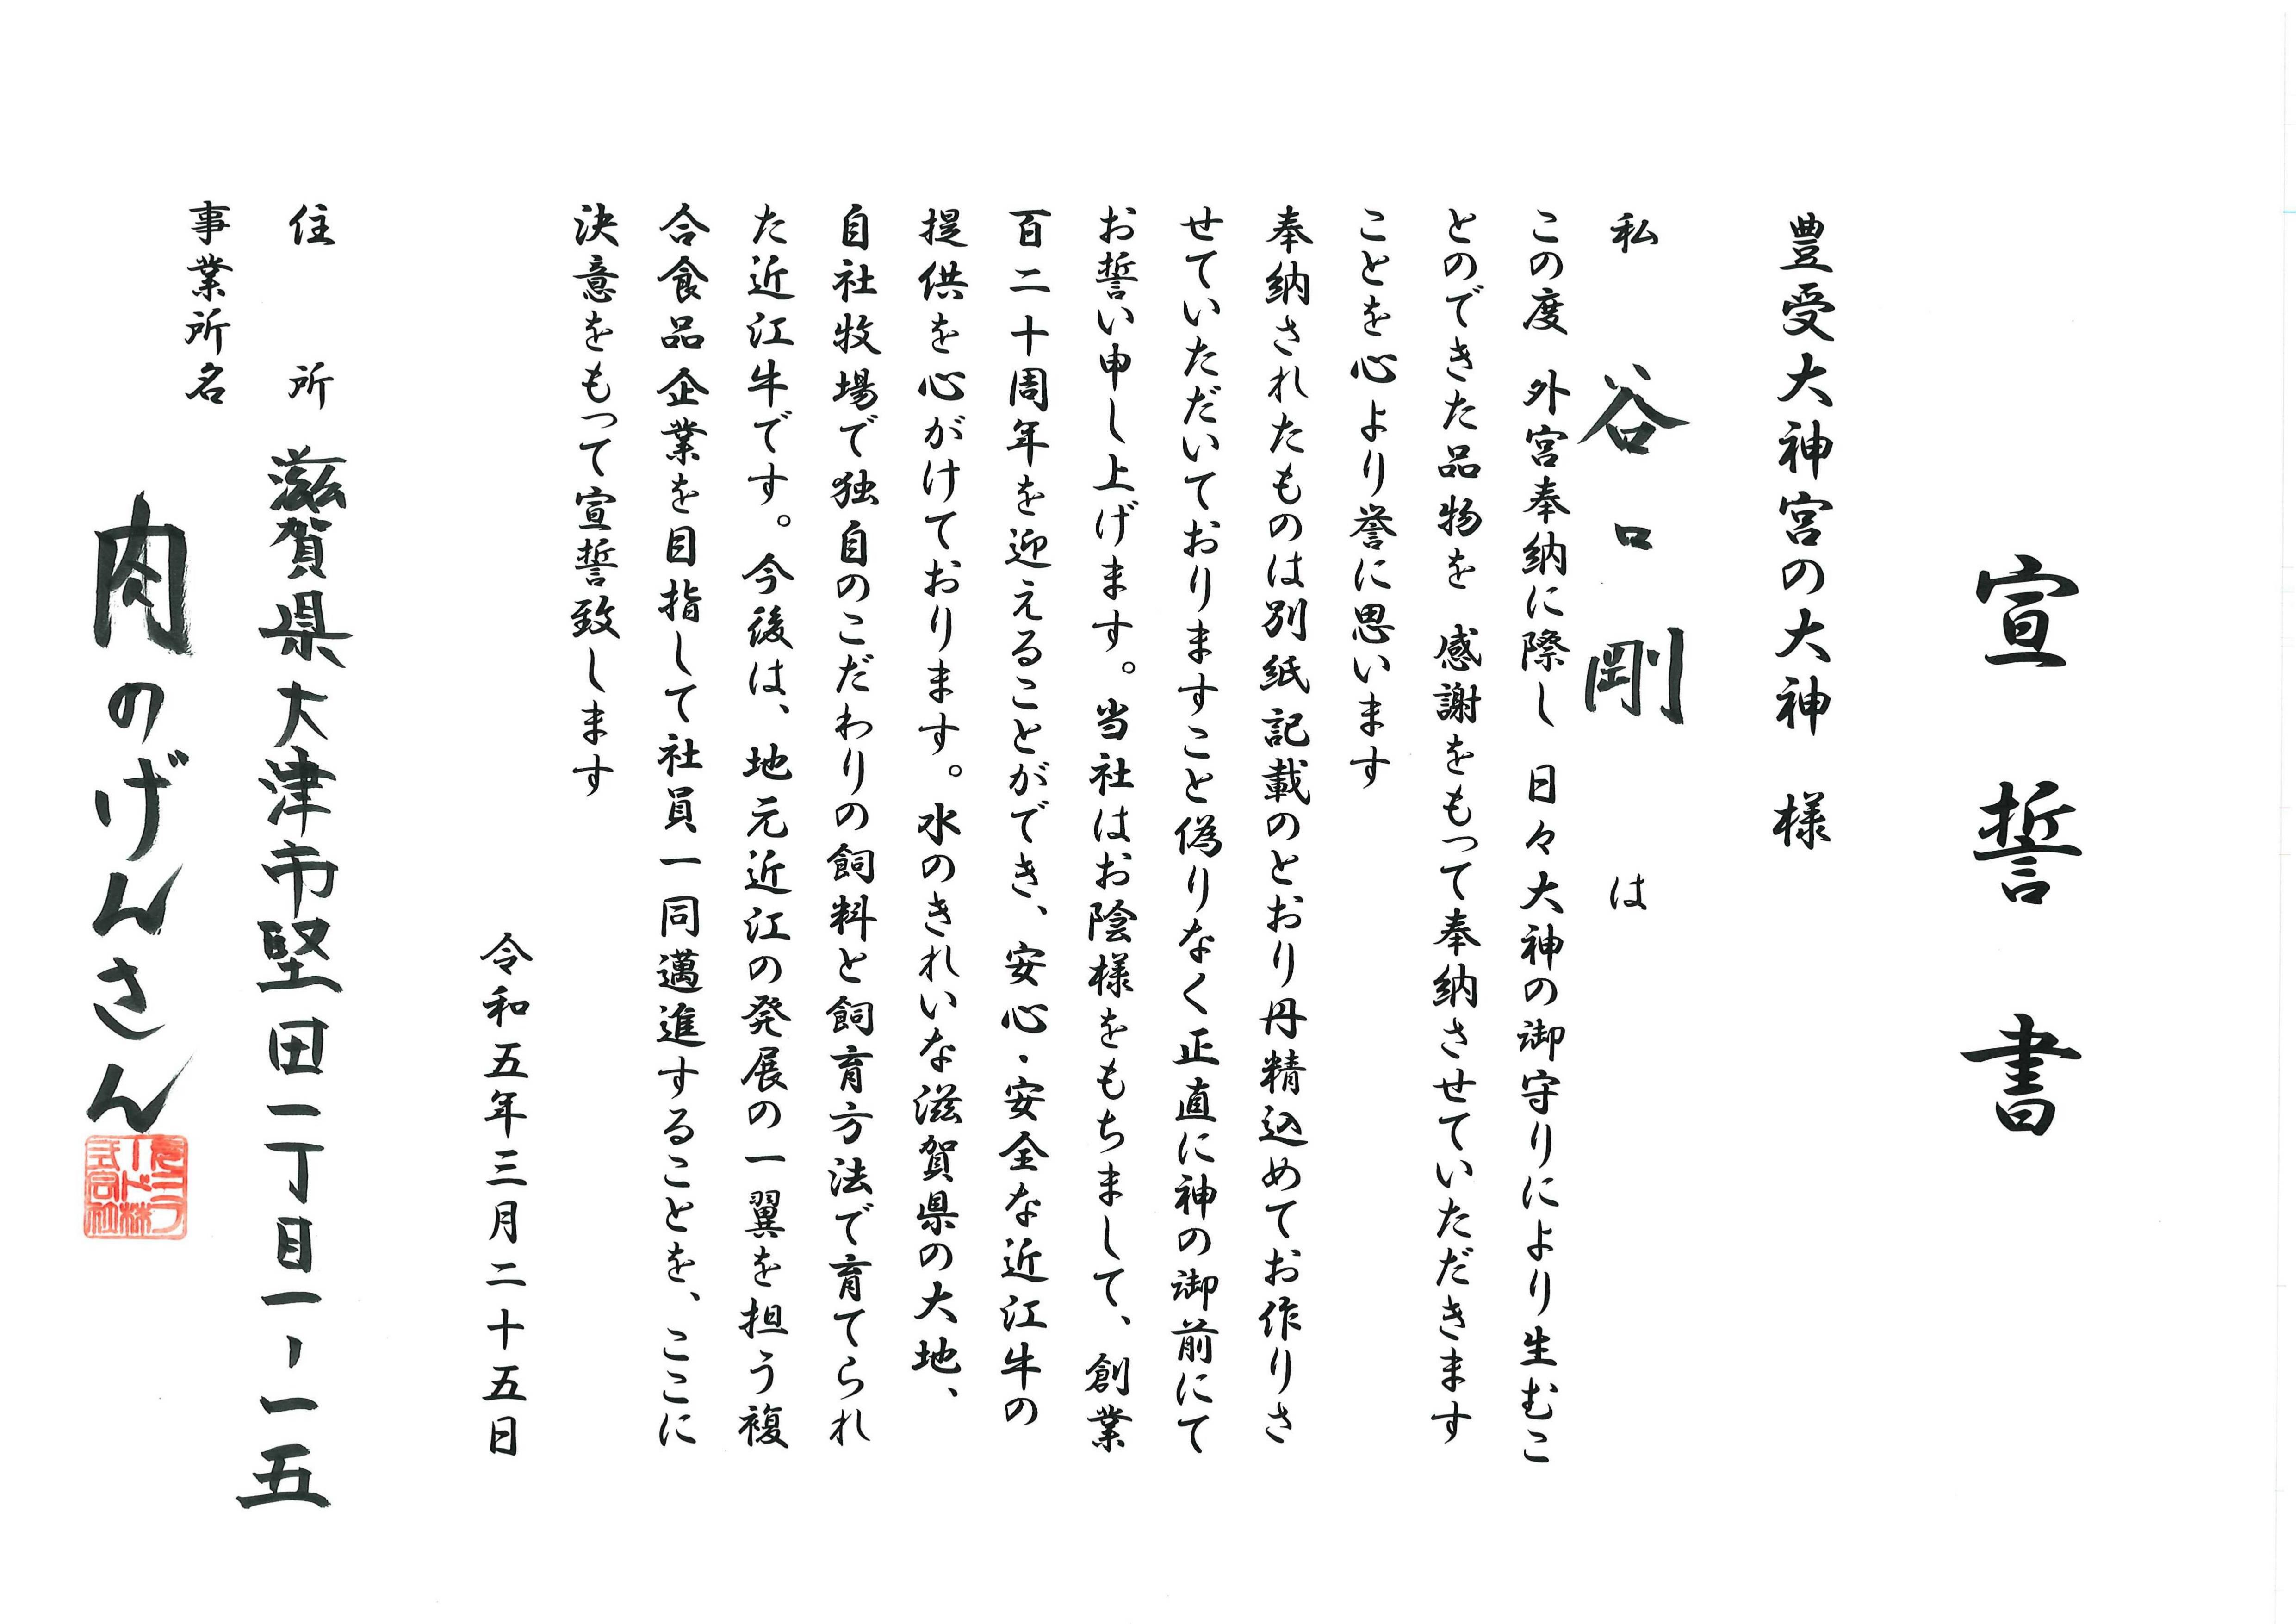 宣誓書
豊受大神宮の大神 様
私 谷口剛 は
この度 外宮奉納に際し 日々大神の御守りにより生むこ
とのできた品物を 感謝をもって奉納させていただきます
ことを心より誉に思います
奉納されたものは別紙記載のとおり丹精込めてお作りさ
せていただいておりますこと偽りなく正直に神の御前にて
お誓い申し上げます。当社はお陰様をもちまして、創業
百二十周年を迎えることができ、安心・安全な近江牛の
提供を心がけております。水のきれいな滋賀県の大地、
自社牧場で独自のこだわりの飼料と飼育方法で育てられ
た近江牛です。今後は、地元近江の発展の一翼を担う複
合食品企業を目指して社員一同邁進することを、ここに
決意をもって宣誓致します
令和五年三月二十五日
住所 滋賀県大津市堅田二丁目一-一五
事業所名 肉のげんさん